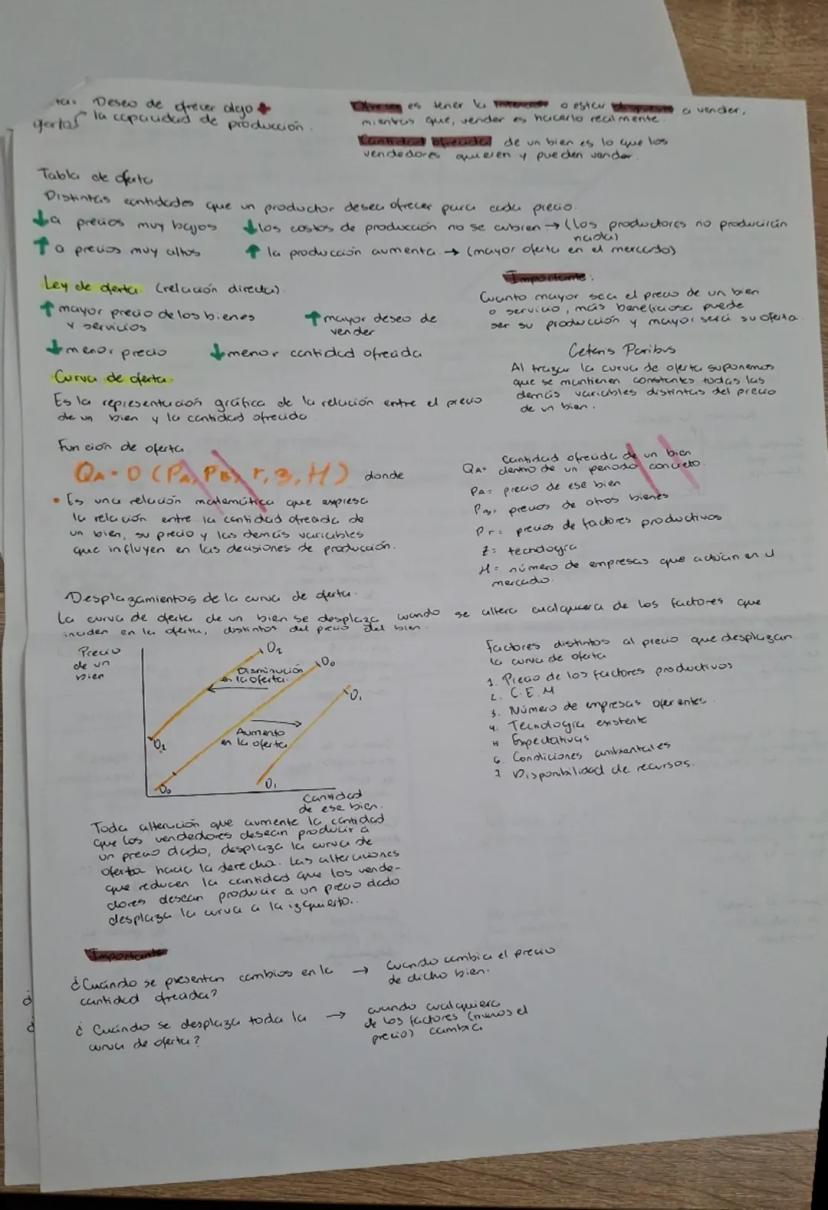 Deseo de ofrecer algo +
la capacidad de producción.
Ofrecer es tener la intención o estar dispuesto a vender,
mientras que, vender es hacerlo realmente.
Cantidad ofrecida de un bien es lo que los
vendedores quieren y pueden vender.
Tabla de oferta
Distintas cantidades que un productor desea ofrecer para cada precio.
↓a precios muy bajos ↓los costos de producción no se cubren → (los productores no producirán
nada)
↑a precios muy altos ↑ la producción aumenta → (mayor oferta en el mercado)
Ley de oferta (relación directa)
↑mayor precio de los bienes
y servicios
↑mayor deseo de
vender
↓menor precio ↓menor cantidad ofrecida
Importante:
Cuanto mayor sea el precio de un bien
o servicio, más beneficiosa puede
ser su producción y mayor será su oferta.
Curva de oferta.
Es la representación gráfica de la relación entre el precio
de un bien y la cantidad ofrecida
Ceteris Paribus
Al trazar la curva de oferta suponemos
que se mantienen constantes todas las
demás variables distintas del precio
de un bien.
Función de oferta
QA = O (PA, PB, r, z, H) donde
• Es una relación matemática que expresa
la relación entre la cantidad ofrecida de
un bien, su precio y las demás variables
que influyen en las decisiones de producción.
QA= cantidad ofrecida de un bien
dentro de un periodo concreto.
PA= precio de ese bien
PB= precios de otros bienes
Pr= precios de factores productivos
Z= tecnología
H= número de empresas que actúan en el
mercado.
Desplazamientos de la curva de oferta.
La curva de oferta de un bien se desplaza cuando se altera cualquiera de los factores que
inciden en la oferta, distintos del precio del bien.
Precio
de un
bien
O2
Disminución
en la oferta.
O0
O1
Aumento
en la oferta
O2
O0
O1
Cantidad
de ese bien.
Factores distintos al precio que desplazan
la curva de oferta
1. Precio de los factores productivos
2. C.E.M
3. Número de empresas oferentes.
4. Tecnología existente
Expectativas
6. Condiciones ambientales
7 Disponibilidad de recursos.
Toda alteración que aumente la cantidad
que los vendedores desean producir a
un precio dado, desplaza la curva de
oferta hacia la derecha. Las alteraciones
que reducen la cantidad que los vende-
dores desean producir a un precio dado
desplaza la curva a la izquierda..
Importante
¿Cuándo se presentan cambios en la
cantidad ofrecida?
→ Cuando cambia el precio
de dicho bien.
¿Cuándo se desplaza toda la
curva de oferta?
→ cuando cualquiera
de los factores (menos el
precio) cambia